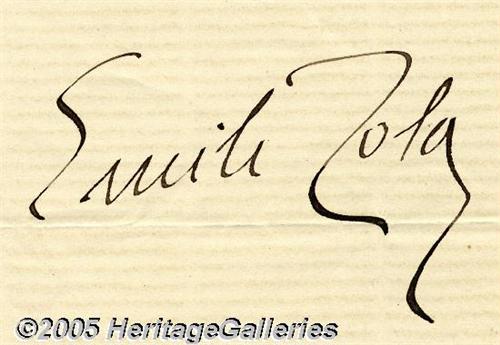 Emile Zola
©2005 HeritageGalleries